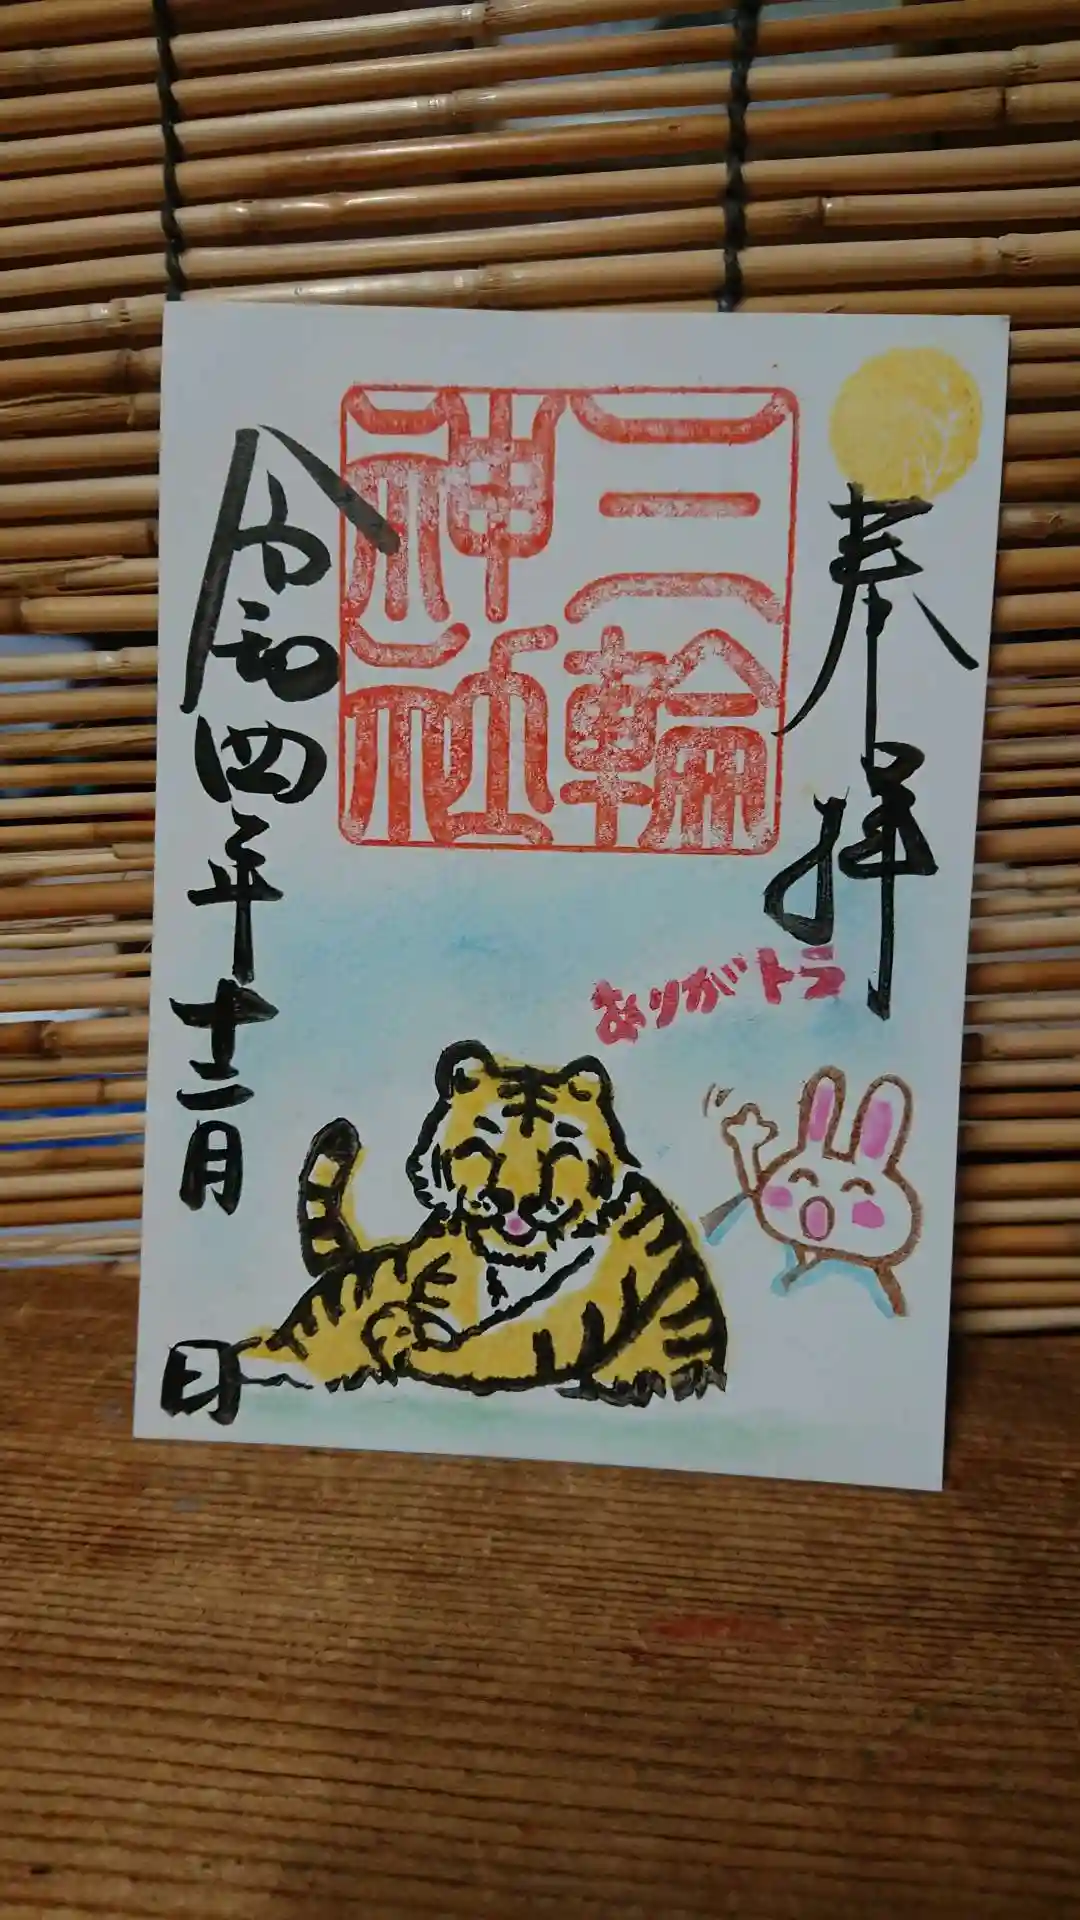 奉拝
三輪
神社
ありがトラ
令和四年十二月
日